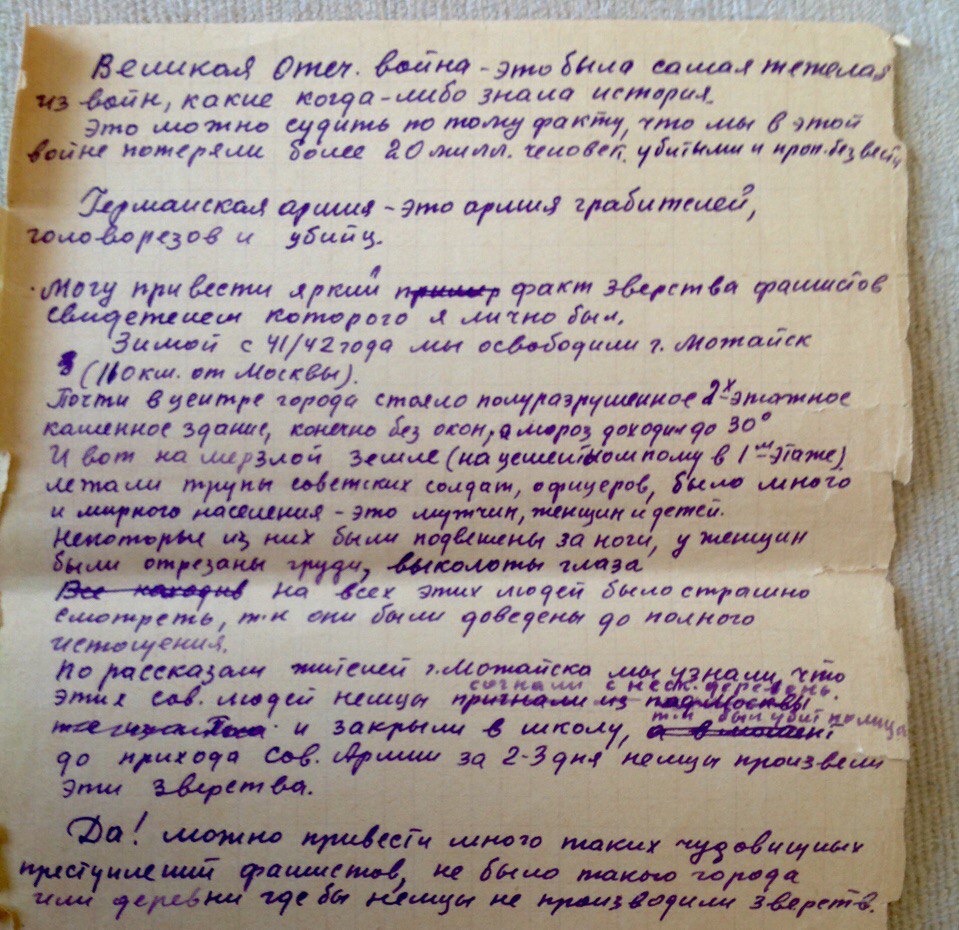 Великая Отеч. война - это была самая тежелая
из войн, какие когда-либо знала история.
Это можно судить по тому факту, что мы в этой
войне потеряли более 20 милл. человек убитыми и проп. без вести
Германская армия - это армия грабителей,
головорезов и убийц.
Могу привести яркий пример факт зверства фашистов
свидетелем которого я лично был.
Зимой с 41/42 года мы освободили г. Можайск
(110 км. от Москвы).
Почти в центре города стояло полуразрушенное 2х-этажное
каменное здание, конечно без окон, а мороз доходил до 30°
И вот на мерзлой земле (на цементном полу в 1м этаже)
лежали трупы советских солдат, офицеров, было много
и мирного населения - это мужчин, женщин и детей.
Некоторые из них были подвешены за ноги, у женщин
были отрезаны груди, выколоты глаза
Все находив на всех этих людей было страшно
смотреть, т.к они были доведены до полного
истощения.
По рассказам жителей г. Можайска мы узнали, что
согнали с неск. деревень.
этих сов. людей немцы пригнали из под Москвы
т.к был убит полицай
и закрыли в школу, а в момент
до прихода Сов. Армии за 2-3 дня немцы произвели
эти зверства.
Да! можно привести много таких чудовищных
преступлений фашистов, не было такого города
или деревни где бы немцы не производили зверств.